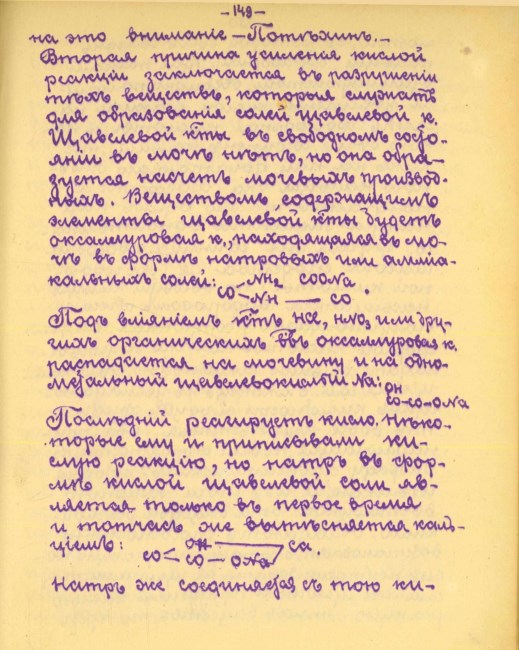 -149-
на это вниманіе - Потѣхинъ. -
Вторая причина усиленія кислой
реакціи заключается въ разрушеніи
тѣхъ веществъ, которыя служатъ
для образованія солей щавелевой к.
Щавелевой к-ты въ свободномъ состо-
яніи въ мочѣ нѣтъ, но она обра-
зуется насчетъ мочевыхъ производ-
ныхъ. Веществомъ, содержащимъ
элементы щавелевой к-ты будетъ
оксалуровая к., находящаяся въ мо-
чѣ въ формѣ натровыхъ или амміа-
кальныхъ солей:
CO< NH2 COONa
NH — CO
Подъ вліяніемъ к-тъ HCl, HNO3 или дру-
гихъ органическихъ в-въ оксалуровая к.
распадается на мочевину и на одно-
метальный щавелевокислый Na:
OH
CO-CO-ONa
Послѣдній реагируетъ кисло. Нѣко-
торые ему и приписывали ки-
слую реакцію, но натръ въ фор-
мѣ кислой щавелевой соли яв-
ляется только въ первое время
и тотчасъ же вытѣсняется каль-
ціемъ:
OH Ca.
CO< CO - ONa
Натръ же соединяется съ тою ки-